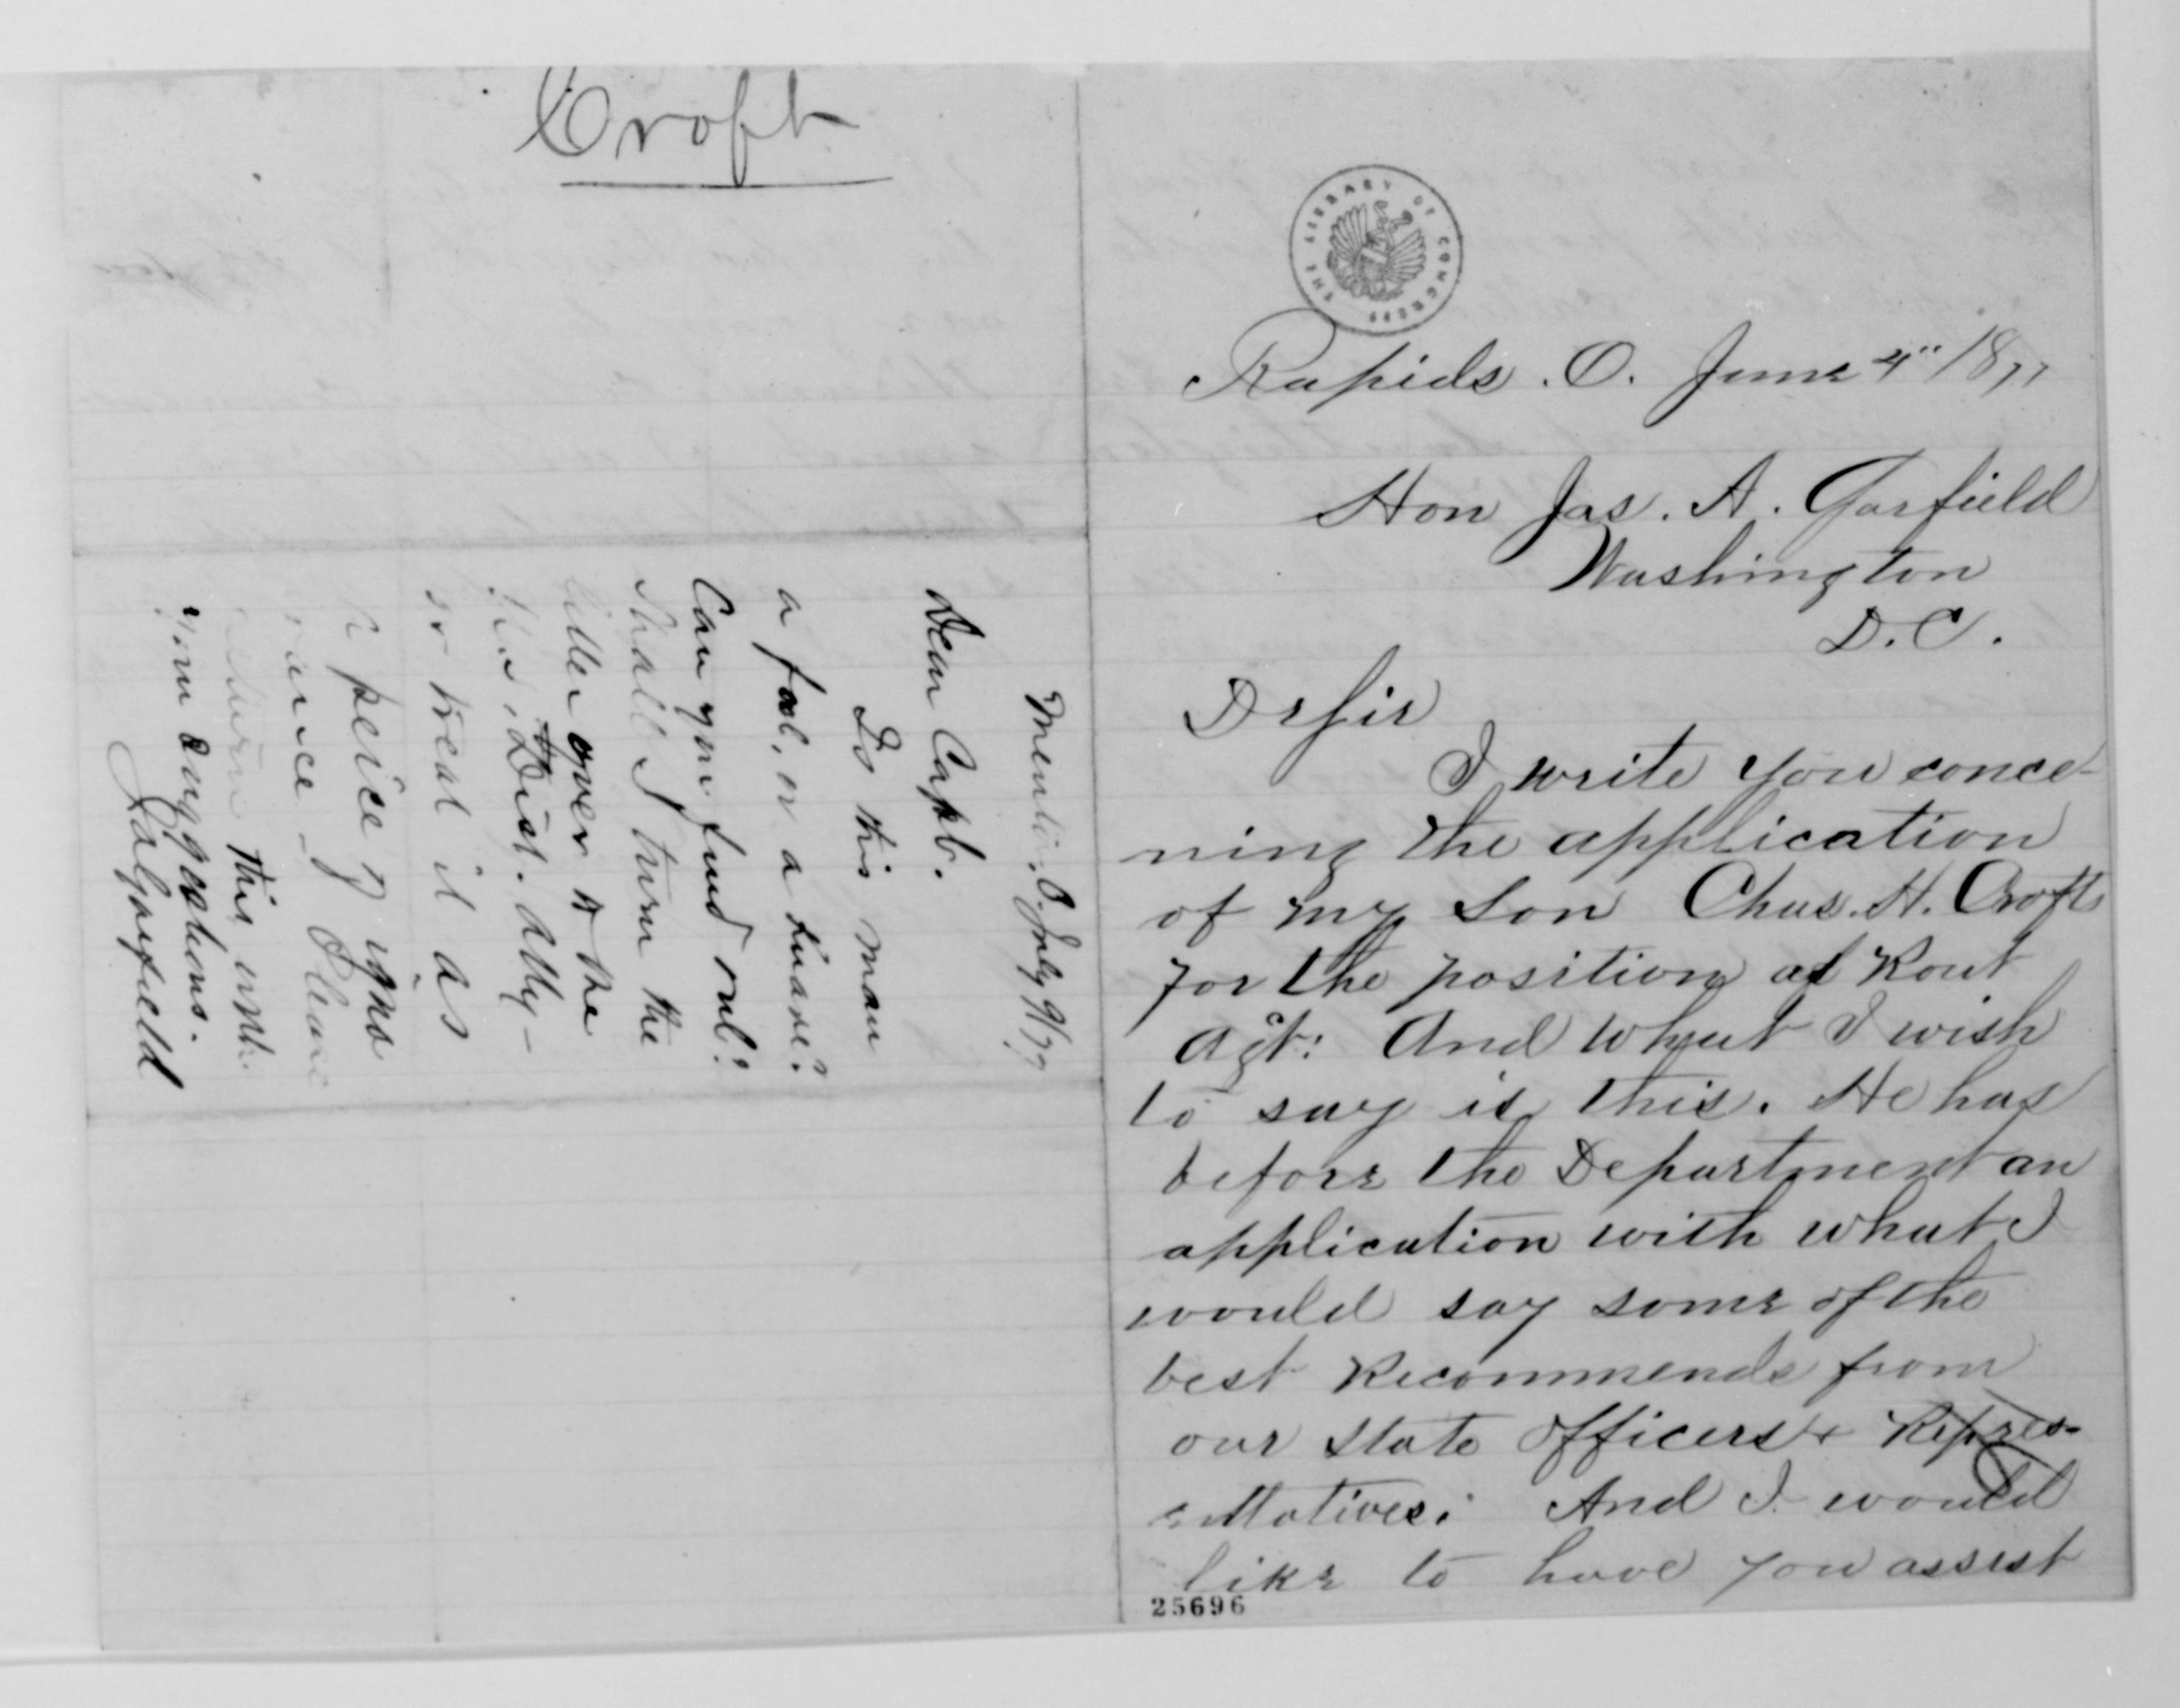 Croft
Mentor, O. July 9/77
Dear Capt.
Is this man
a fool, or a knave?
Can you find out?
Shall I turn the
letter over to the
U.S. Dist. Atty —
or treat it as
a peice of igno
rance — Please
return this with
your suggestions.
J.A. Garfield
THE LIBRARY OF CONGRESS
Rapids. O. June 4" 1877
Hon Jas. A. Garfield
Washington
D.C.
Dr Sir
I write you conce-
rning the application
of my Son Chas. H. Croft
for the position as Rout
Agt: And what I wish
to say is this. He has
before the Department an
application with what I
would say some of the
best Recommends from
our State Officers & Repres-
entatives: And I would
like to have you assist
25696